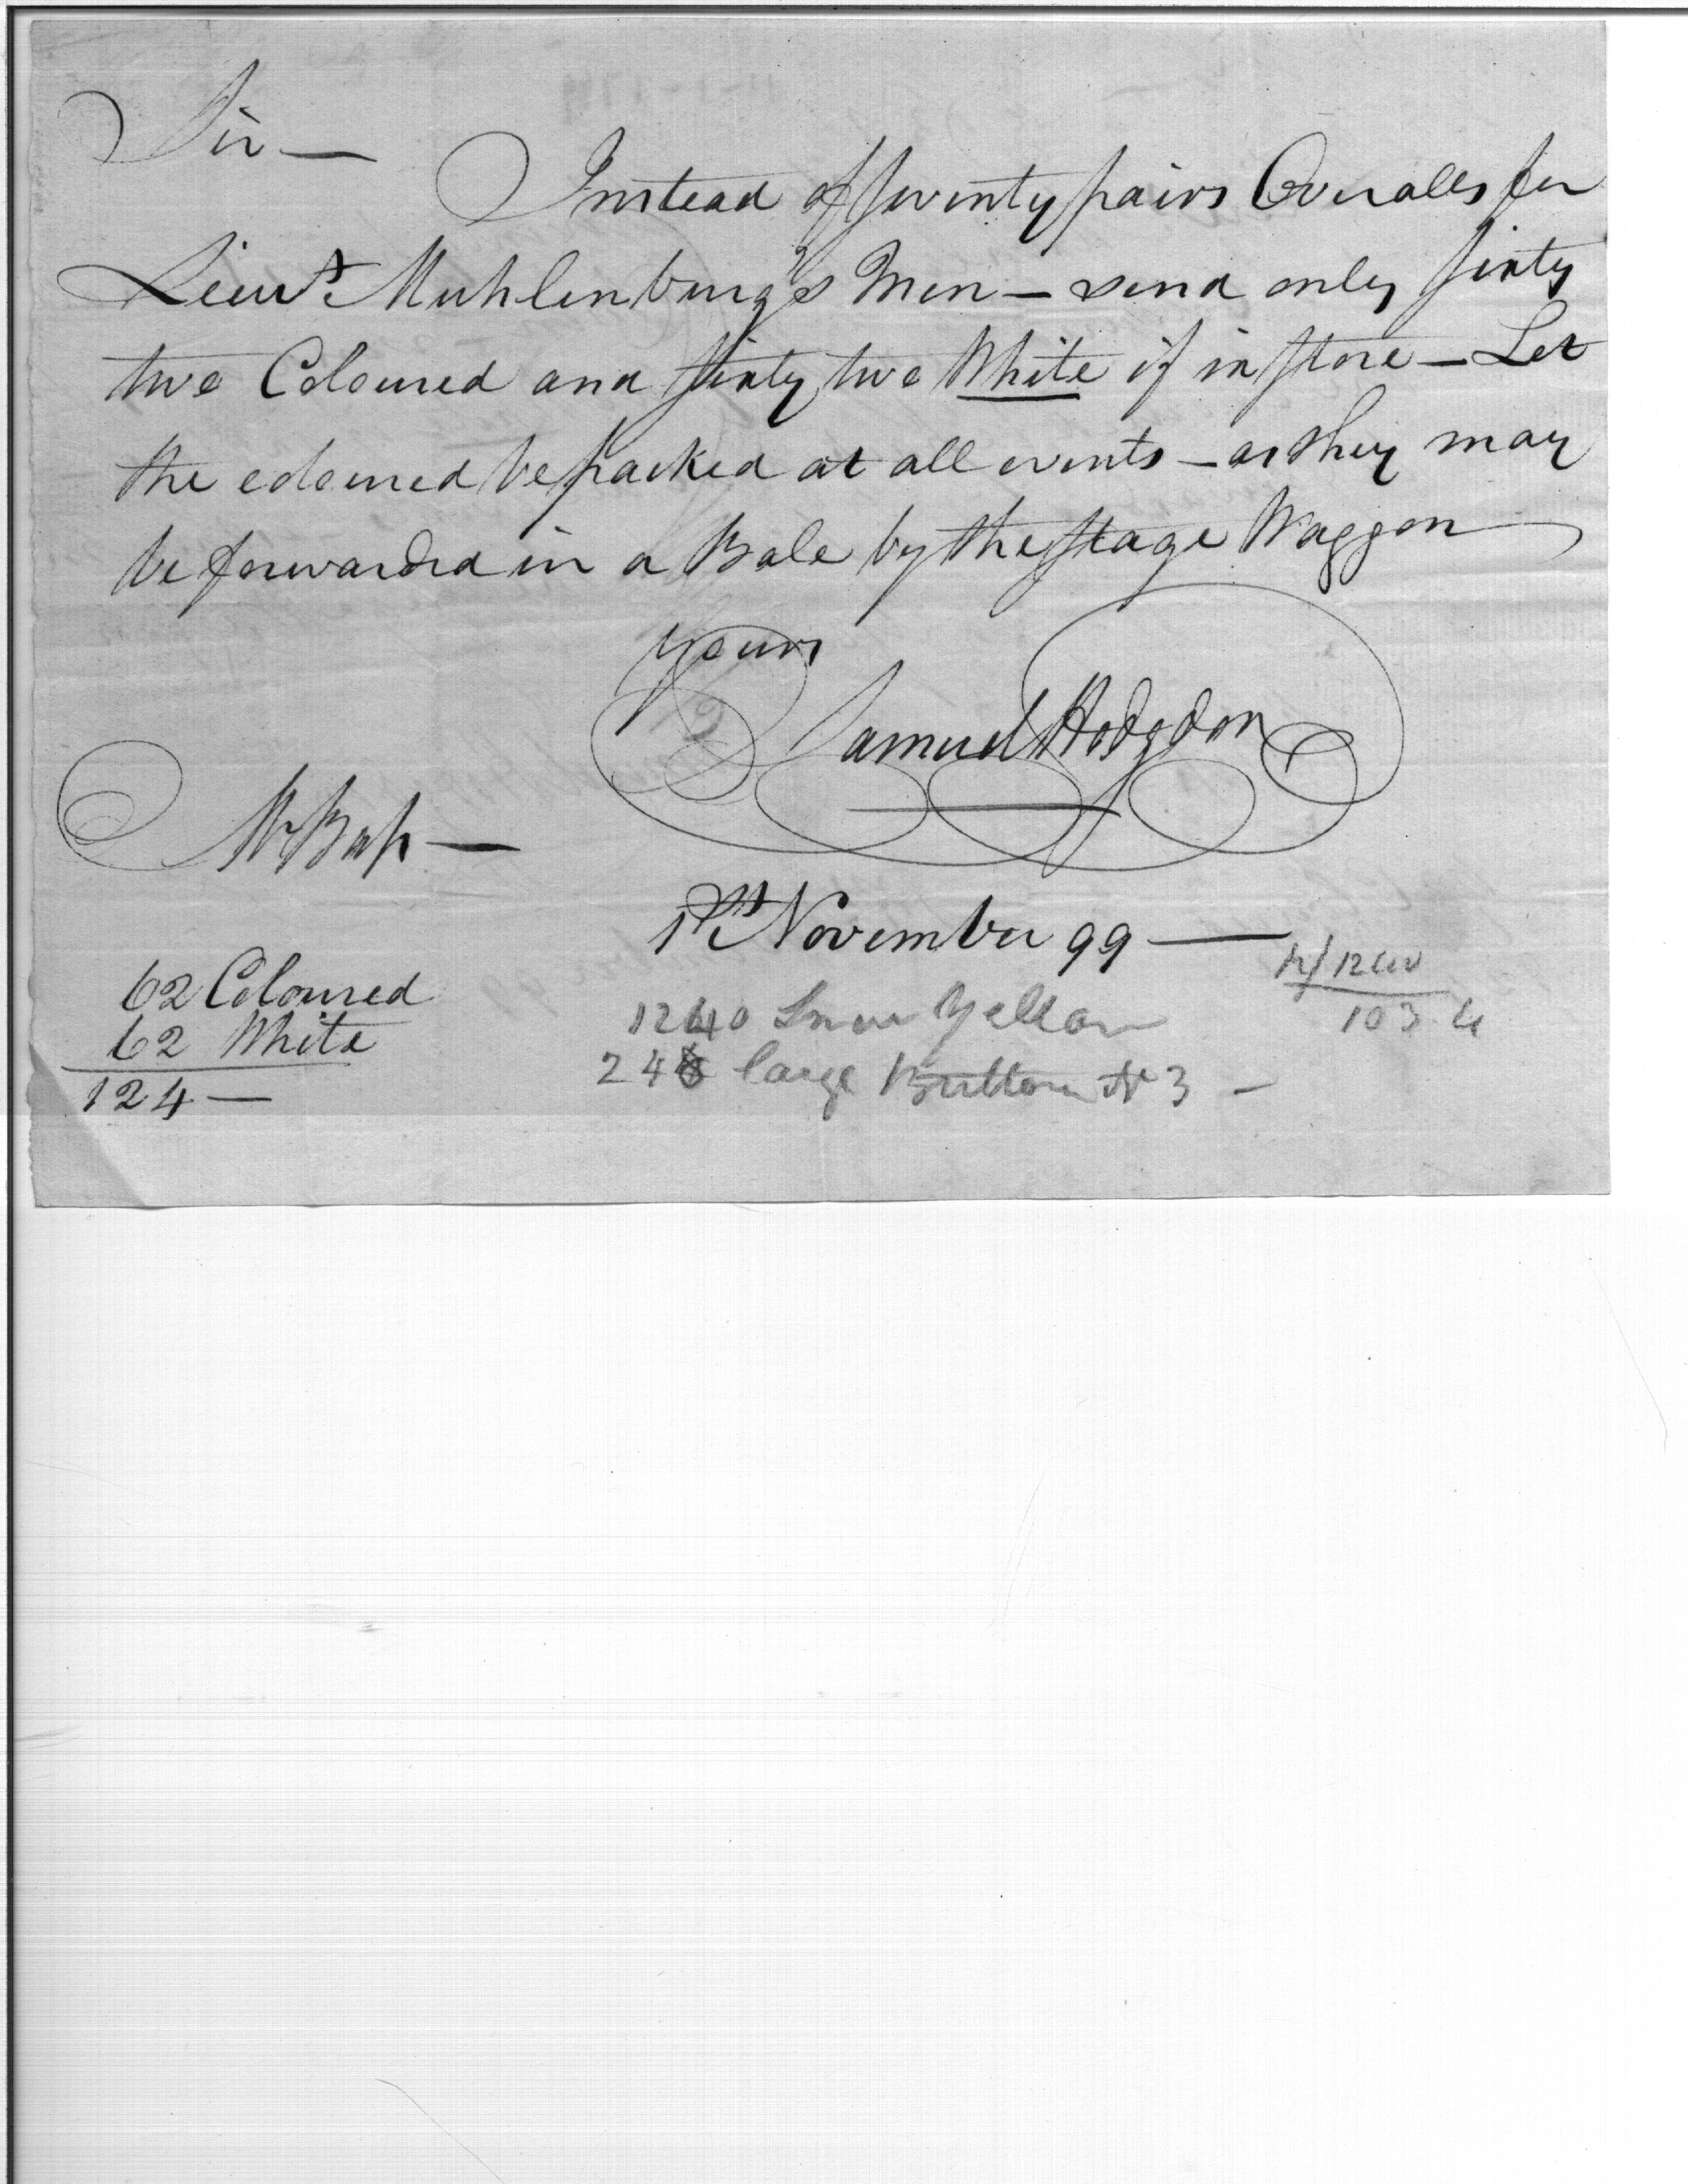 Sir —
Instead of seventy pairs Overalls for
Lieut. Muhlenburg's Men — send only sixty
two Coloured and sixty two White if in store — Let
the coloured be packed at all events — as they may
be forwarded in a Bale by the stage Waggon
Yours
Samuel Hodgdon
Mr Bass —
1st November 99 —
62 Coloured
62 White
124 —
1240 Yellow
248 large Button No 3 —
12
103.4